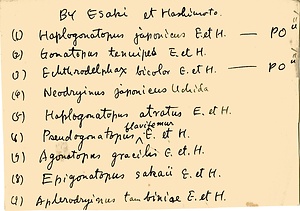 BY Esaki et Hashimoto.
(1) Haplogonatopus japonicus E. et H. — PO
(2) Gonatopus tenuipes E. et H.
(3) Echthrodelphax bicolor E. et H. — PO
(4) Neodryinus japonicus Uchida
(5) Haplogonatopus atratus E. et H.
(6) Pseudogonatopus flavifemur E. et H.
(7) Agonatopus gracilis E. et H.
(8) Epigonatopus sakaii E. et H.
(9) Aphelodryinus tambiniae E. et H.